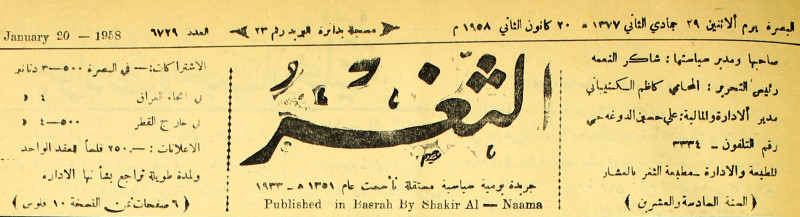 البصرة يوم ألاثنين ٢٩ جمادي الثاني ١٣٧٧ ه ٢٠ كانون الثاني ١٩٥٨ م
مسجلة بدائرة البريد رقم ٢٣
العدد ٦٧٢٩
January 20 - 1958
صاحبها ومدير سياستها : شاكر النعمه
رئيس التحرير : المحامي كاظم
مدير ألادارة والمالية : علي حسين
رقم التلفون - ٣٣٣٤
المطبعة والادارة - مطبعة الثغر بالعشار
( السنة السادسة والعشرين )
الثغر
جريدة يومية سياسية مستقلة تأسست عام ١٣٥١ ه - ١٩٣٣
Published in Basrah By Shakir Al - Naama
الاشتراكات :- في البصرة ٥٠٠-٣ دنانير
في انحاء العراق ٤ د
في خارج القطر ٥٠٠-٤ د
الاعلانات :- ٢٥٠ فلساً العقد الواحد
ولمدة طويلة تراجع بشأنها الاداره
( ٦ صفحات ثمن النسخة ١٠ فلوس )